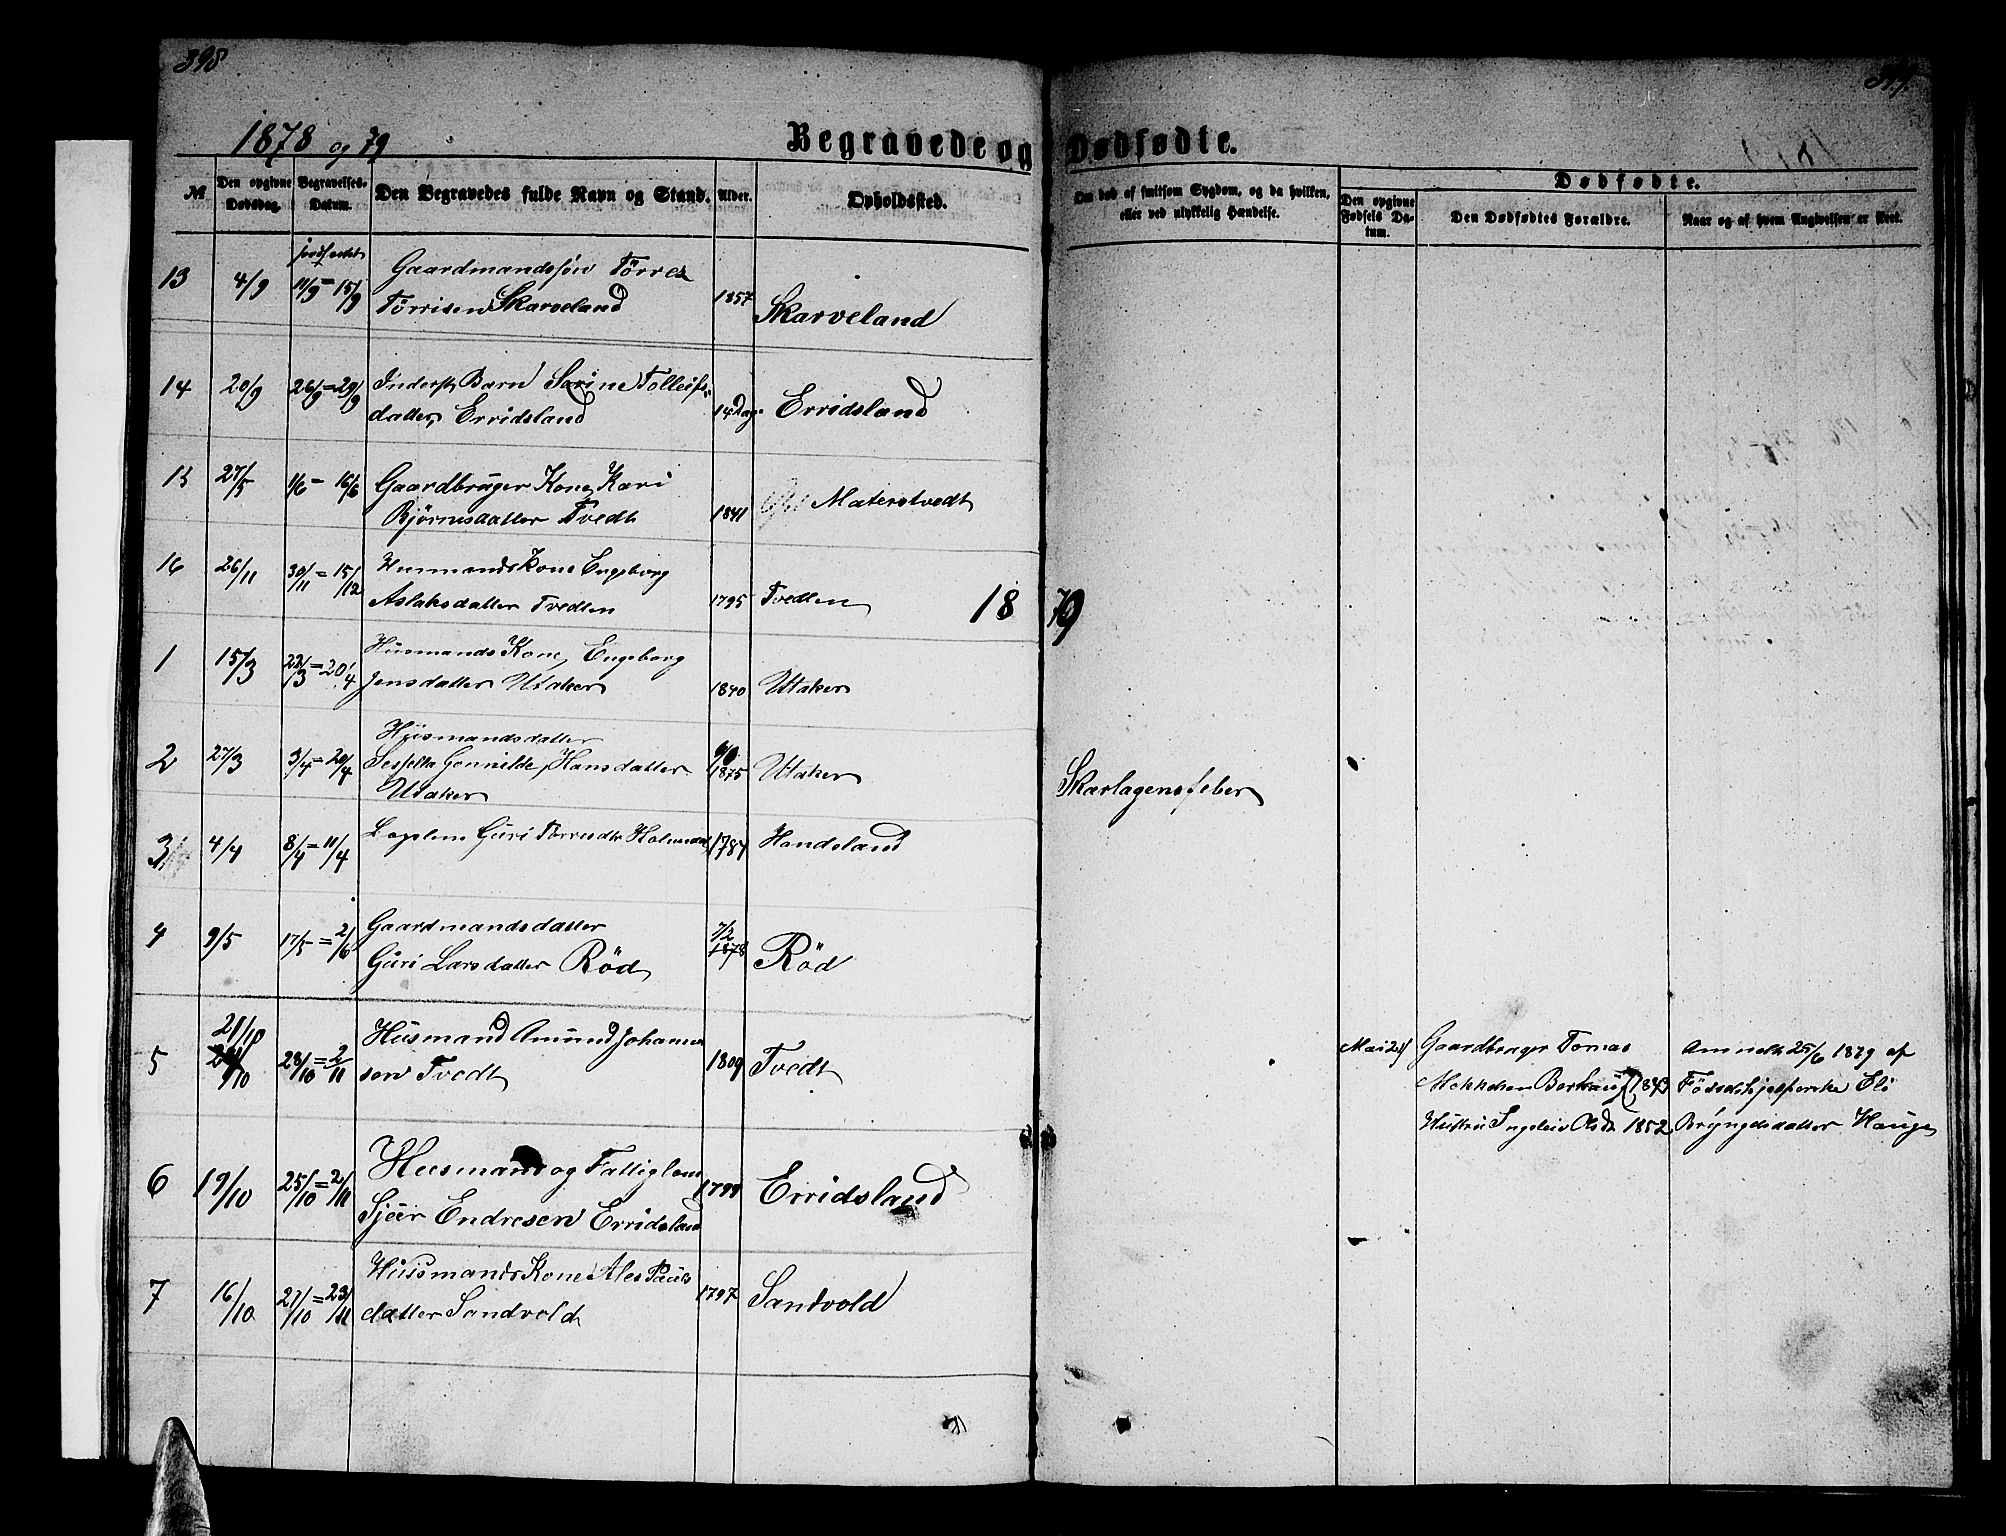 398
1878 og 79
Begravede og Dødfødte.
№
Den opgivne Dødsdag.
Begravelses-Datum.
Den Begravedes fulde Navn og Stand.
Alder.
Opholdssted.
Om død af smitsom Sygdom, og da hvilken,
eller ved ulykkelig Hændelse.
Dødfødte.
Den opgivne Fødsels Datum.
Den Dødfødtes Forældre.
Naar og af hvem Angivelsen er skeet.
13 4/9 jordfæstet 11/9 = 15/9 Gaardmandssøn Törres
Törrisen Skarveland 1857 Skarveland
14 20/9 26/9 = 29/9 Inderst Barn Serine Tolleifs-
datter Erridsland 14 Dage Erridsland
15 27/5 1/6 = 16/6 Gaardbruger Kone Kari
Bjørnesdatter Tvedt 1841 Materstvedt
16 26/11 30/11 = 15/12 Husmands Kone Engeborg
Aslaksdatter Tvedten 1795 Tvedten
1879
1 15/3 22/3 = 20/4 Husmands Kone Engeborg
Jensdatter Utaker 1840 Utaker
2 27/3 3/4 = 20/4 Husmandsdatter
Gonnilde Hansdatter 1875 Utaker Skarlagensfeber
Utaker
3 4/4 8/4 = 11/4 Guri 1787 Handsland
4 9/5 17/5 = 2/6 Gaardmandsdatter 7/2
Guri Larsdatter Röd 1878 Röd
5 21/10 28/10 = 2/11 Husmand Amund Johannes
sen Tvedt 1809 Tvedt
Mai 24 Gaardbruger Tomas
Borkaug 1843
Hustru Ingeleiv Olsdr 1852
Anmeldt 25/6 1879 af
Fødselshjelperske Eli
Bryngelsdatter Hauge
6 19/10 25/10 = 2/11 Husmand og Fattiglem
Sjur Endresen Erridsland 1799 Erridsland
7 16/10 21/10 = 23/11 Husmands Kone Ales Pauls
datter Sandvold 1797 Sandvold